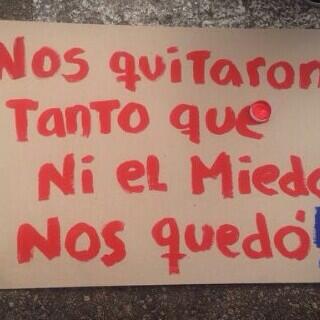 Nos quitaron
Tanto que
Ni el Miedo
Nos quedó